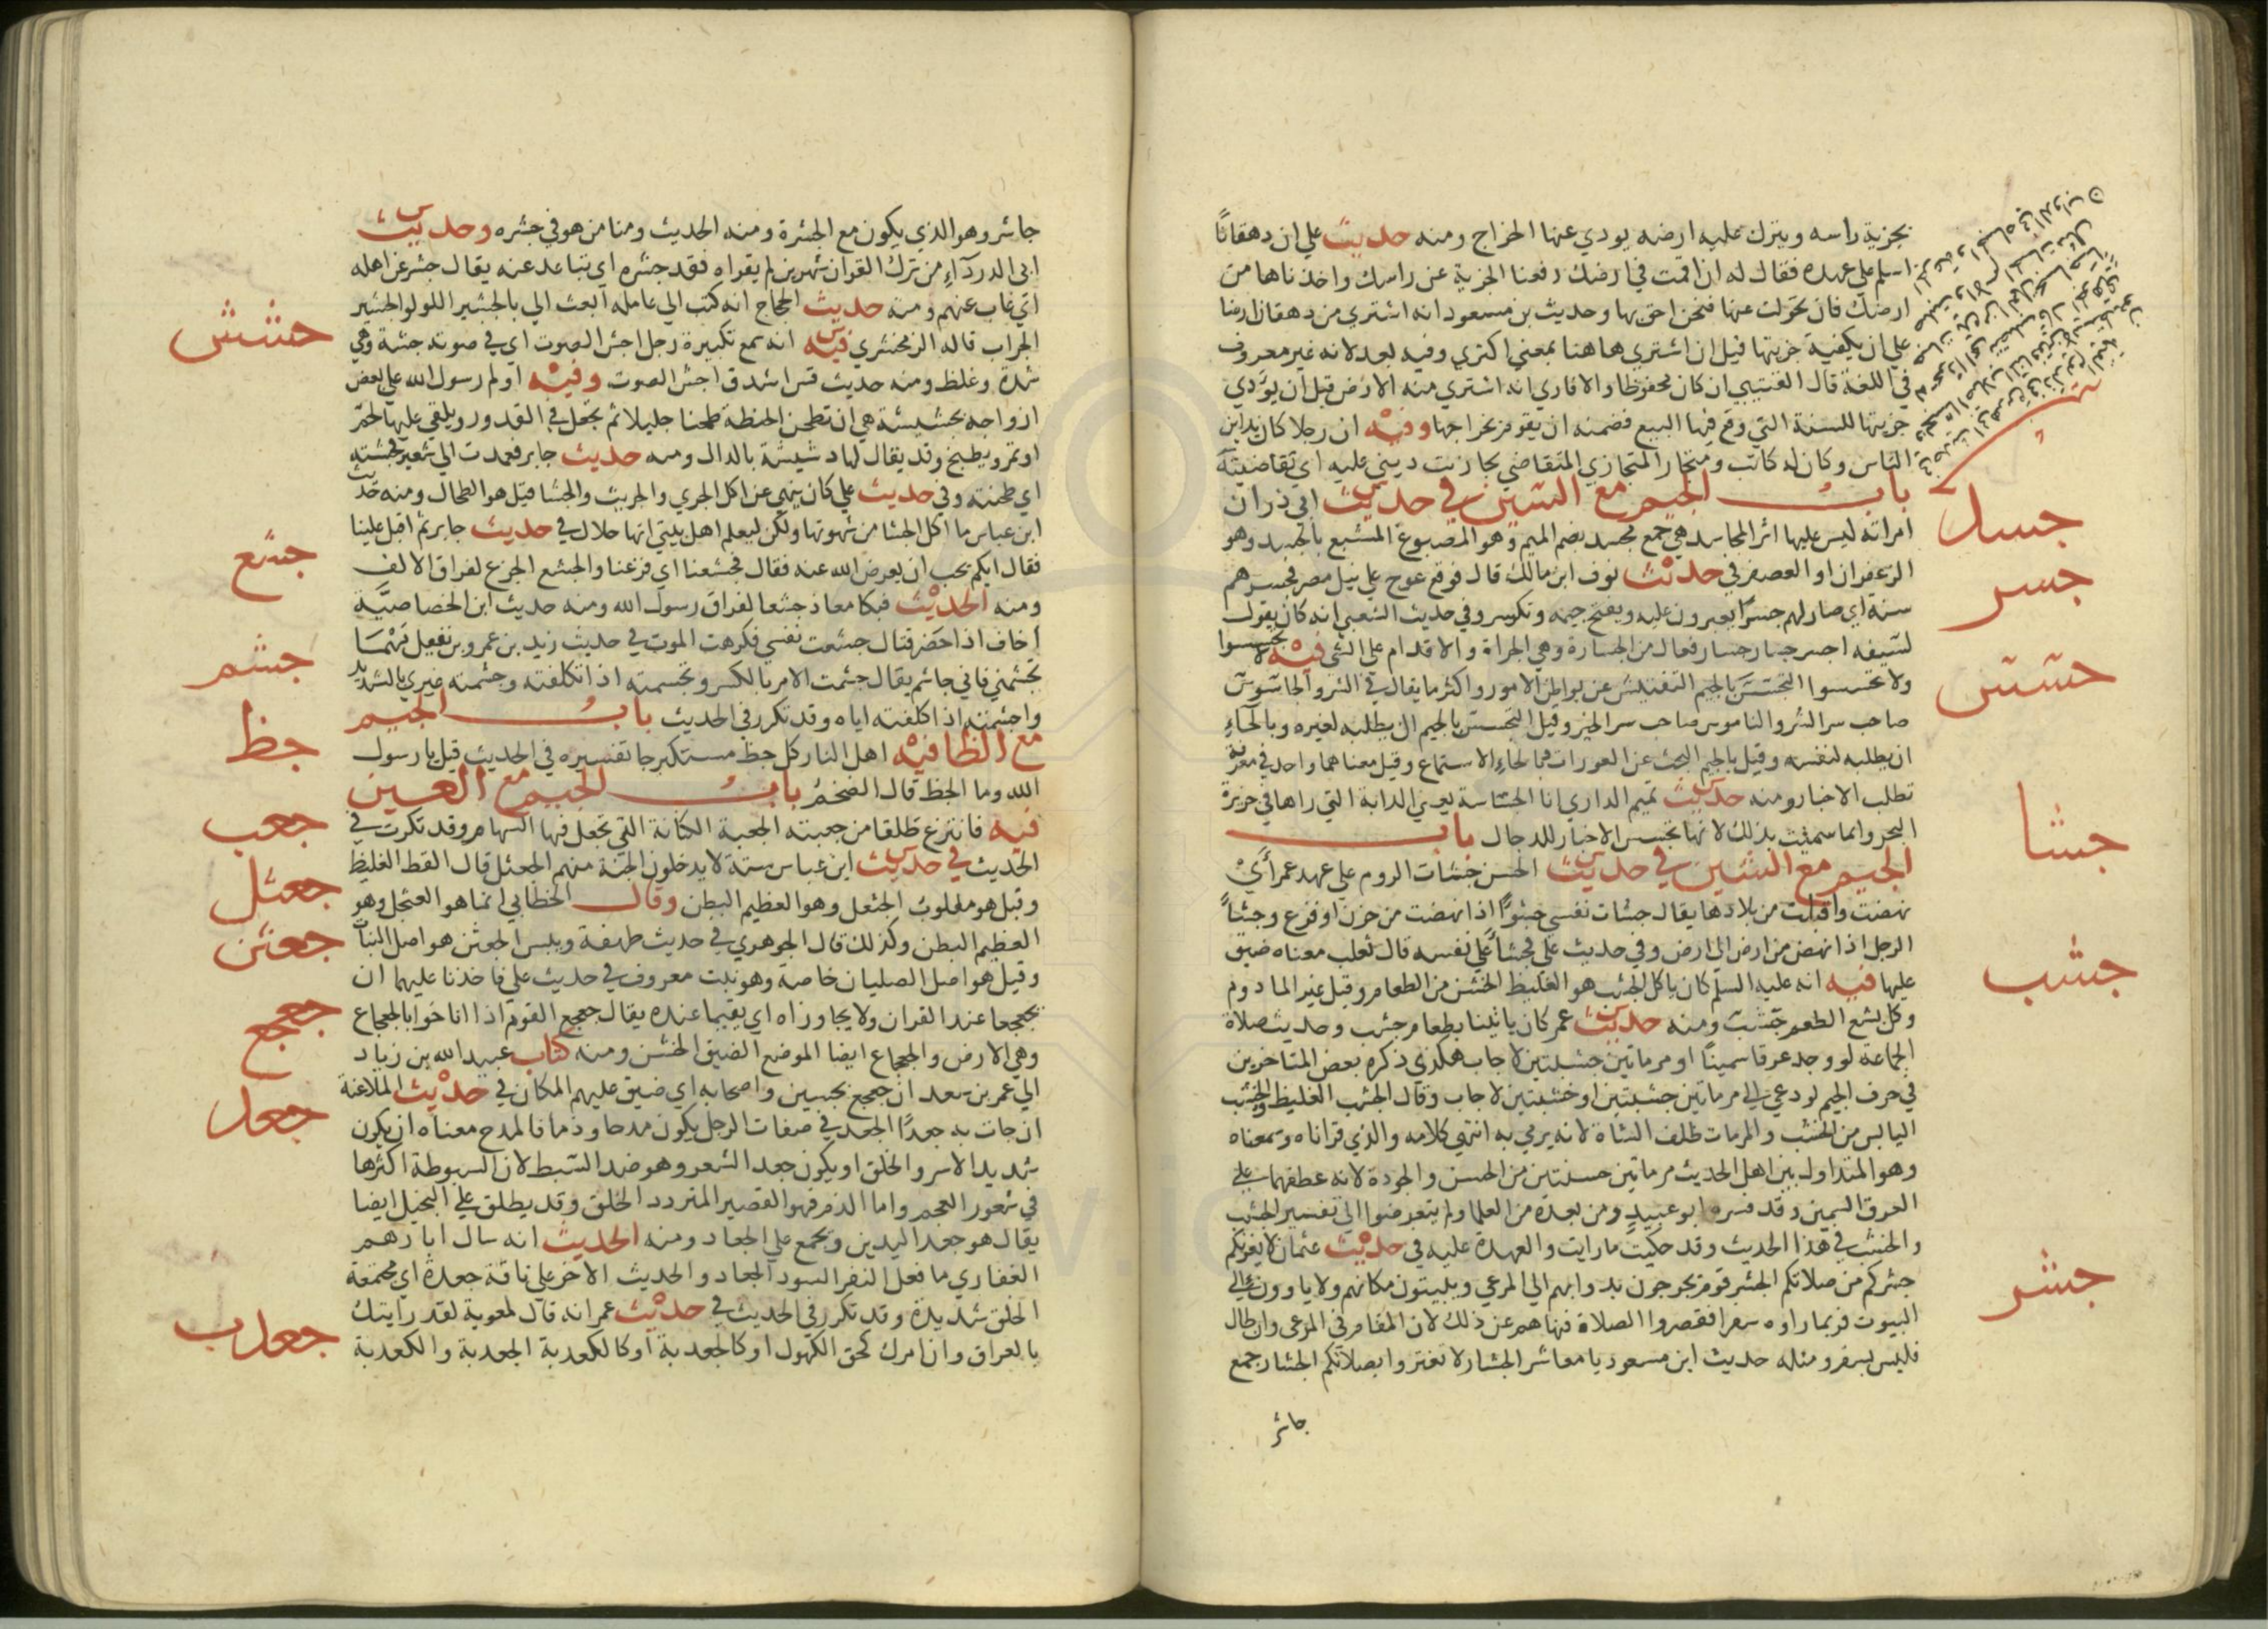 بجزية راسه ويترك عليه ارضه يودي عنها الخراج ومنه حديث علي ان دهقانًا
اسلم علي عهده فقال له ان اقمت في ارضك رفعنا الجزية عن راسك واخذناها من
ارضك فان تحولت عنها فنحن احق بها وحديث بن مسعود انه اشتري من دهقان ارضا
علي ان يكفيه جزيتها قيل ان اشتري هاهنا بمعني اكتري وفيه بعد لانه غير معروف
في اللغة قال القتيبي ان كان محفوظا والا فاري انه اشتري منه الارض قبل ان يودي
جزيتها للسنة التي وقع فيها البيع فضمنه ان يقوم بخراجها وفيه ان رجلا كان يداين
الناس وكان له كاتب ومتجاز المتجازي المتقاضي تجازيت ديني عليه اي تقاضيته
باب الجيم مع السين في حديث ابي ذر ان
امراته ليس عليها اثر المجاسد هي جمع مجسد بضم الميم وهو المصبوغ المشبع بالجسد وهو
الزعفران او العصفر في حديث نوف ابن مالك قال فوقع عوج علي نيل مصر فجسرهم
سنة اي صار لهم جسرًا يعبرون عليه ويفتح جيمه وتكسر وفي حديث الشعبي انه كان يقول
لسيفه اجسر جسار جسار فعال من الجسارة وهي الجراة والاقدام علي الشي فيه لا تجسسوا
ولا تحسسوا التجسس بالجيم التفتيش عن بواطن الامور واكثر ما يقال في الشر والجاسوس
صاحب سر الشر والناموس صاحب سر الخير وقيل التجسس بالجيم ان يطلبه لغيره وبالحاء
ان يطلبه لنفسه وقيل بالجيم البحث عن العورات وبالحاء الاستماع وقيل معناهما واحد في معرفة
تطلب الاخبار ومنه حديث تميم الداري انا الجساسة يعني الدابة التي راها في جزيرة
البحر وانما سميت بذلك لانها تجسس الاخبار للدجال باب
الجيم مع الشين في حديث الحسن جشات الروم علي عهد عمر أي
نهضت واقبلت من بلادها يقال جشات نفسي جشوًا اذا نهضت من حزن او فزع وجشأ
الرجل اذا نهض من ارض الي ارض وفي حديث علي فجشأ علي نفسه قال ثعلب معناه ضيق
عليها فيه انه عليه السلم كان ياكل الجشب هو الغليظ الخشن من الطعام وقيل غير المادوم
وكل بشع الطعم جشب ومنه حديث عمر كان ياتينا بطعام جشب وحديث صلاة
الجماعة لو وجد عرقا سمينًا او مرماتين جشبتين لاجاب هكذي ذكره بعض المتاخرين
في حرف الجيم لو دعي الي مرماتين جشبتين او خشبتين لاجاب وقال الجشب الغليظ والخشب
اليابس من الخشب والمرمات ظلف الشاة لانه يرمي به انتهي كلامه والذي قراناه وسمعناه
وهو المتداول بين اهل الحديث مرماتين حسنتين من الحسن والجودة لانه عطفهما علي
العرق السمين وقد فسره ابو عبيد ومن بعده من العلما ولم يتعرضوا الي تفسير الجشب
والخشب في هذا الحديث وقد حكيت ما رايت والعهدة عليه في حديث عثمان لا يغرنكم
جشركم من صلاتكم الجشر قوم يخرجون بدوابهم الي المرعي ويبيتون مكانهم ولا ياوون الي
البيوت فربما راوه سفرا فقصروا الصلاة فنهاهم عن ذلك لان المقام في المرعي وان طال
فليس بسفر ومثله حديث ابن مسعود يا معاشر الجشار لا تغتروا بصلاتكم الجشار جمع
جاشر
جسد
جسر
جسس
جشا
جشب
جشر
جاشر وهو الذي يكون مع الجشرة ومنه الحديث ومنا من هو في جشره وحديث
ابي الدرداء من ترك القران شهرين لم يقراه فقد جشره اي تباعد عنه يقال جشر عن اهله
اي غاب عنهم ومنه حديث الحجاج انه كتب الي عامله ابعث الي بالجشير اللولو الجشير
الجراب قاله الزمخشري فيه انه سمع تكبيرة رجل اجش الصوت اي في صوته جشة وهي
شدة وغلظ ومنه حديث قس اشدق اجش الصوت وفيه اولم رسول الله علي بعض
ازواجه بجشيشة هي ان تطحن الحنظة طحنا جليلا ثم تجعل في القدور ويلقي عليها لحم
او تمر ويطبخ وقد يقال لها دشيشة بالدال ومنه حديث جابر فعمدت الي شعير فجشته
اي طحنته وفي حديث علي كان ينهي عن اكل الجري والجريث والجشا قيل هو الطحال ومنه حديث
ابن عباس ما اكل الجشا من شهوتها ولكن ليعلم اهل بيتي انها حلال في حديث جابر ثم اقبل علينا
فقال ايكم يحب ان يعرض الله عنه فقال فجشعنا اي فزعنا والجشع الجزع لفراق الالف
ومنه الحديث فبكا معاذ جشعا لفراق رسول الله ومنه حديث ابن الخصاصيّة
اخاف اذا حضر قتال جشعت نفسي فكرهت الموت في حديث زيد بن عمرو بن نفيل مهما
تجشمني فاني جاشم يقال جشمت الامر بالكسر وتجسمته اذا تكلفته وجشمته غيري بالتشديد
واجشمته اذا كلفته اياه وقد تكرر في الحديث باب الجيم
مع الظا فيه اهل النار كل جظ مستكبر جا تفسيره في الحديث قيل يا رسول
الله وما الجظ قال الضخم باب الجيم مع العين
فيه فانتزع طلقا من جعبته الجعبة الكنانة التي تجعل فيها السهام وقد تكررت في
الحديث في حديث ابن عباس ستة لا يدخلون الجنة منهم الجعثل قال الفظ الغليظ
وقيل هو مقلوب الجثعل وهو العظيم البطن وقال الخطابي انما هو العثجل وهو
العظيم البطن وكذلك قال الجوهري في حديث طهفة ويبس الجعثن هو اصل النبات
وقيل هو اصل الصليان خاصة وهو نبت معروف في حديث علي فاخذنا عليهما ان
يجعجعا عند القران ولا يجاوزاه اي يقيما عنده يقال جعجع القوم اذا اناخوا بالجعجاع
وهي الارض والجعجاع ايضا الموضع الضيق الخشن ومنه كتاب عبيد الله بن زياد
الي عمر بن سعد ان جعجع بحسين واصحابه اي ضيق عليهم المكان في حديث الملاعنة
ان جات به جعدًا الجعد في صفات الرجل يكون مدحا وذما فالمدح معناه ان يكون
شديد الاسر والخلق او يكون جعد الشعر وهو ضد السبط لان السبوطة اكثرها
في شعور العجم واما الذم فهو القصير المتردد الخلق وقد يطلق علي البخيل ايضا
يقال هو جعد اليدين ويجمع علي الجعاد ومنه الحديث انه سال ابا رهم
الغفاري ما فعل النفر السود الجعاد والحديث الاخر علي ناقة جعدة اي مجتمعة
الخلق شديدة وقد تكرر في الحديث في حديث عمر انه قال لمعوية لقد رايتك
بالعراق وان امرك كحق الكهول او كالجعدبة او كالكعدبة الجعدبة والكعدبة
حشش
جشع
جشم
جظ
جعب
جعثل
جعثن
جعجع
جعد
جعدب